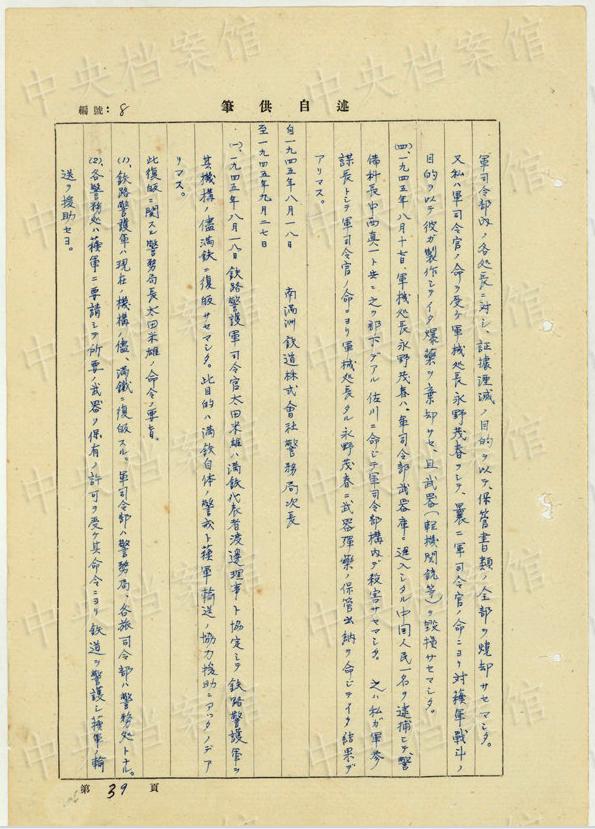 述自供筆
編號：8
軍司令部內ノ各処長ニ対シ、証據湮滅ノ目的ヲ以テ、保管書類ノ全部ヲ燒却サセマシタ。
又私ハ軍司令官ノ命ヲ受ケ軍械処長永野茂春ヲシテ、曩ニ軍司令官ノ命ニヨリ対蘓軍戰斗ノ
目的ヲ以テ彼ガ製作シテイタ爆藥ヲ棄却サセ、且武器（軽機関銃等）ヲ毀損サセマシタ。
(四)、一九四五年八月十七日軍械処長永野茂春ハ、軍司令部武器庫ニ進入シタル中国人民一名ヲ逮捕シテ、警
備科長中西真一ト共ニ之ヲ部下デアル佐川ニ命ジテ軍司令部構內デ殺害サセマシタ。之ハ私ガ軍参
謀長トシテ軍司令官ノ命ニヨリ軍械処長タル永野茂春ニ武器弾藥ノ保管出納ヲ命ジテイタ結果デ
アリマス。
自一九四五年八月一八日
至一九四五年九月二七日
南満洲鉄道株式會社警務局次長
(一)、一九四五年八月一八日鉄路警護軍司令官太田米雄ハ満鉄代表者渡邊理事ト協定シテ鉄路警護軍ヲ
其機構ノ儘満鉄ニ復皈サセマシタ。此目的ハ満鉄自体ノ警戒ト蘓軍輸送ノ協力援助ニアツタノデア
リマス。
此復皈ニ関スル警務局長太田米雄ノ命令ノ要旨。
(1)、鉄路警護軍ハ現在ノ機構ノ儘、満鐵ニ復皈スル。軍司令部ハ警務局、各旅司令部ハ警務処トナル。
(2)、各警務処ハ蘓軍ニ要請シテ所要ノ武器ノ保有ノ許可ヲ受ケ其命令ニヨリ鉄道ヲ警護シ蘓軍ノ輸
送ヲ援助セヨ。
第39頁
中央档案馆